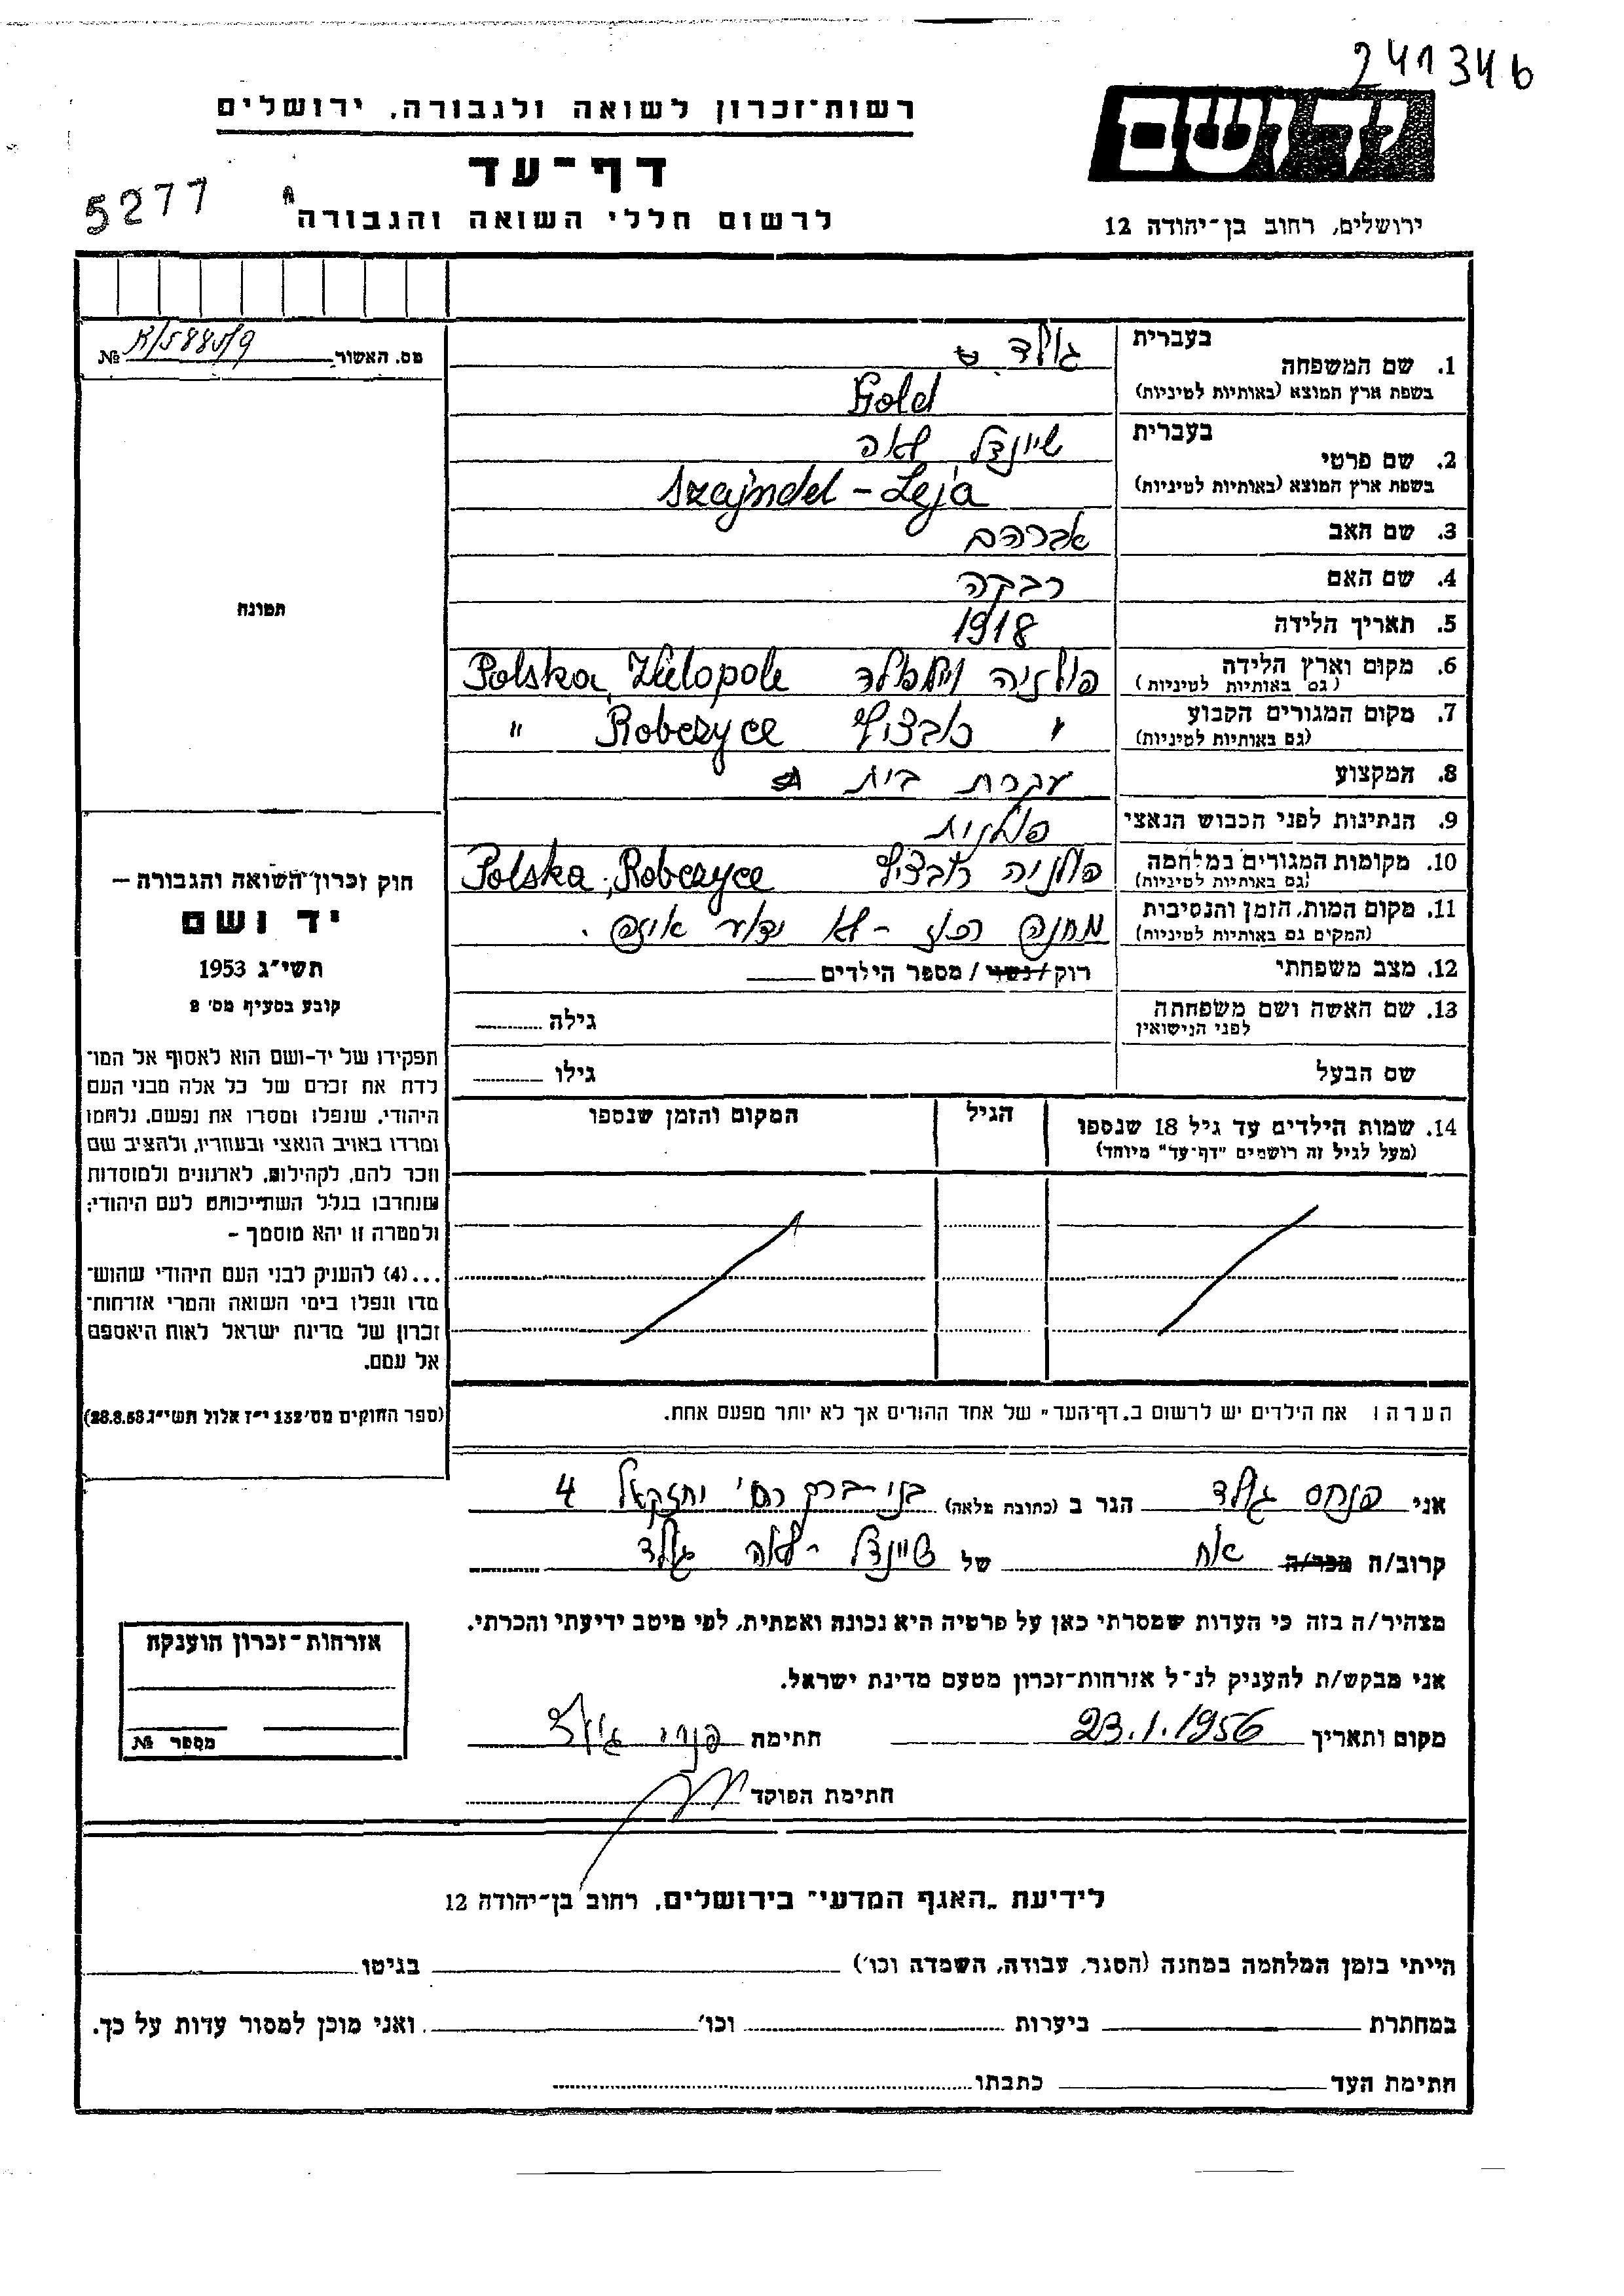 241346
יד ושם
רשות-זכרון לשואה ולגבורה, ירושלים
דף-עד
5277
לרשום חללי השואה והגבורה
ירושלים, רחוב בן-יהודה 12
מס. האשור №
1. שם המשפחה
בעברית גולד
בשפת ארץ המוצא (באותיות לטיניות) Gold
2. שם פרטי
בעברית שיינדל לאה
בשפת ארץ המוצא (באותיות לטיניות) Szajndel - Leja
3. שם האב אברהם
4. שם האם רבקה
5. תאריך הלידה 1918
6. מקום וארץ הלידה (גם באותיות לטיניות) פולניה Polska, Wielopole
7. מקום המגורים הקבוע (גם באותיות לטיניות) " Robczyce "
8. המקצוע עקרת בית
9. הנתינות לפני הכבוש הנאצי פולנית
10. מקומות המגורים במלחמה (גם באותיות לטיניות) פולניה Polska, Robczyce
11. מקום המות, הזמן והנסיבות (המקום גם באותיות לטיניות) מחנה רכוז - לא ידוע איזה.
12. מצב משפחתי רוק / נשוי / מספר הילדים
13. שם האשה ושם משפחתה לפני הנישואין גילה
שם הבעל גילו
14. שמות הילדים עד גיל 18 שנספו
(מעל לגיל זה רושמים "דף-עד" מיוחד)
הגיל
המקום והזמן שנספו
הערה: את הילדים יש לרשום ב"דף-העד" של אחד ההורים אך לא יותר מפעם אחת.
תמונה
חוק זכרון השואה והגבורה –
יד ושם
תשי"ג 1953
קובע בסעיף מס' 2
תפקידו של יד-ושם הוא לאסוף אל המו-
לדת את זכרם של כל אלה מבני העם
היהודי, שנפלו ומסרו את נפשם, נלחמו
ומרדו באויב הנאצי ובעוזריו, ולהציב שם
וזכר להם, לקהילות, לארגונים ולמוסדות
שנחרבו בגלל השתייכותם לעם היהודי;
ולמטרה זו יהא מוסמך –
...(4) להעניק לבני העם היהודי שהוש-
מדו ונפלו בימי השואה והמרי אזרחות-
זכרון של מדינת ישראל לאות היאספם
אל עמם.
(ספר החוקים מס' 132 י"ז אלול תשי"ג 28.8.53)
אני פנחס גולד הגר ב (כתובת מלאה) בני-ברק רח' יחזקאל 4
קרוב/ה מכר/ה אח של שיינדל - לאה גולד
מצהיר/ה בזה כי העדות שמסרתי כאן על פרטיה היא נכונה ואמתית, לפי מיטב ידיעתי והכרתי.
אני מבקש/ת להעניק לנ"ל אזרחות-זכרון מטעם מדינת ישראל.
מקום ותאריך 23.1.1956 חתימה
חתימת הפוקד
אזרחות-זכרון הוענקה
מספר №
לידיעת "האגף המדעי" בירושלים, רחוב בן-יהודה 12
הייתי בזמן המלחמה במחנה (הסגר, עבודה, השמדה וכו') בגיטו
במחתרת ביערות וכו' ואני מוכן למסור עדות על כך.
חתימת העד כתבתו